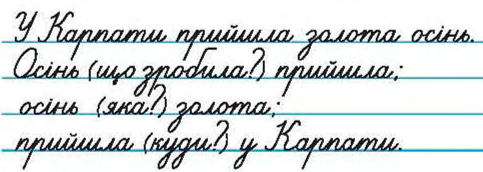 У Карпати прийшла золота осінь.
Осінь (що зробила?) прийшла;
осінь (яка?) золота;
прийшла (куди?) у Карпати.